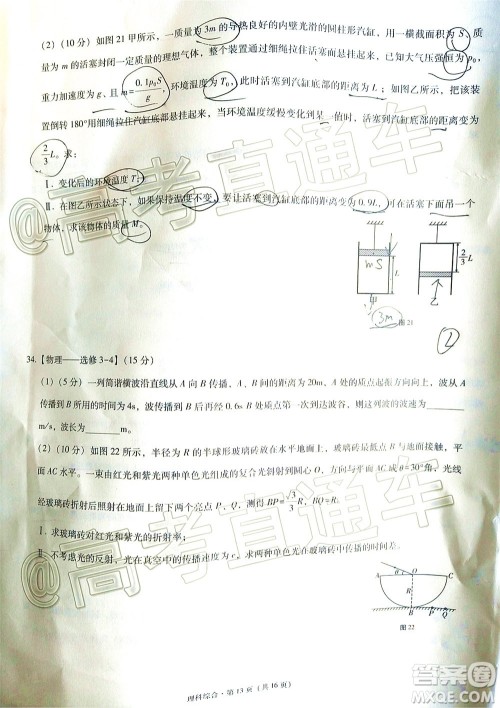 (2)(10分)如图21甲所示,一质量为3m的导热良好的内壁光滑的圆柱形汽缸,用一横截面积为S、质
量为m的活塞封闭一定质量的理想气体,整个装置通过细绳拉住活塞而悬挂,已知大气压强恒为p₀,
重力加速度为g,且m=0.1p₀S/g,环境温度为T₀,此时活塞到汽缸底部的距离为L。如图乙,将该装
置倒转180°用细绳拉住汽缸底部悬挂起来,当环境温度缓慢变化到某一值时,活塞到汽缸底部的距离变为
2/3 L。求:
Ⅰ.变化后的环境温度T;
Ⅱ.在图乙所示状态下,如果保持温度不变,要让活塞到汽缸底部的距离为0.9L,可在活塞下面吊一个
物体,求该物体的质量M。
mS
L
甲
3m
2/3 L
乙
图21
②
34.【物理——选修3-4】(15分)
(1)(5分)一列简谐横波沿直线从A向B传播,A、B之间的距离为20m,A处的质点起振方向向上,波
从A向B传播的时间为4s,波传到B后再经0.6s B处的质点
m/s,波长为 m。
(2)(10分)如图22所示,半径为R的半球形玻璃砖放在水平地面上,玻璃砖最低点为B,球心为O,水
平面AC水平。一束由红光和紫光两种单色光组成的复合光射到O点,与界面AC成θ=30°角,光线
经玻璃砖折射后照射在地面上有两个亮点P、Q,已知BP=√3/3 R,BQ=R。
Ⅰ.求玻璃砖对红光和紫光的折射率;
Ⅱ.不考虑光的反射,光在真空中的传播速度为c,求两种单色光在玻璃砖中传播的时间差。
θ
A O C
R
B P Q
图22
理科综合·第13页(共16页)
@高考直通车
@高考直通车
答案圈
MXQE.COM